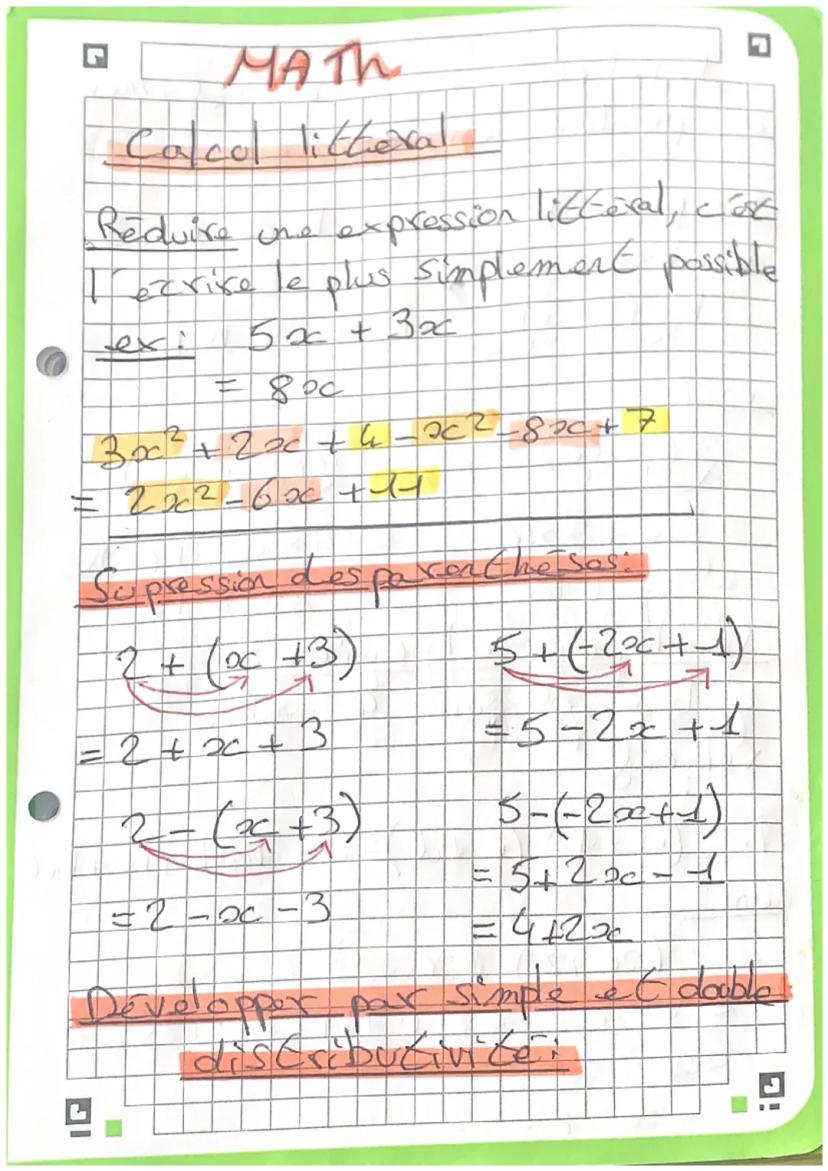 MATh
Calcol littéral
Réduire une expression littéral, c'est
l'ecrire le plus simplement possible
ex: 5x + 3x
= 8x
3x² + 2x + 4 - x² - 8x + 7
= 2x² - 6x + 11
Supression des parenthéses:
2 + (x + 3)
= 2 + x + 3
5 + (-2x + 1)
= 5 - 2x + 1
2 - (x + 3)
= 2 - x - 3
5 - (-2x + 1)
= 5 + 2x - 1
= 4 + 2x
Développer par simple et double
distributivité: